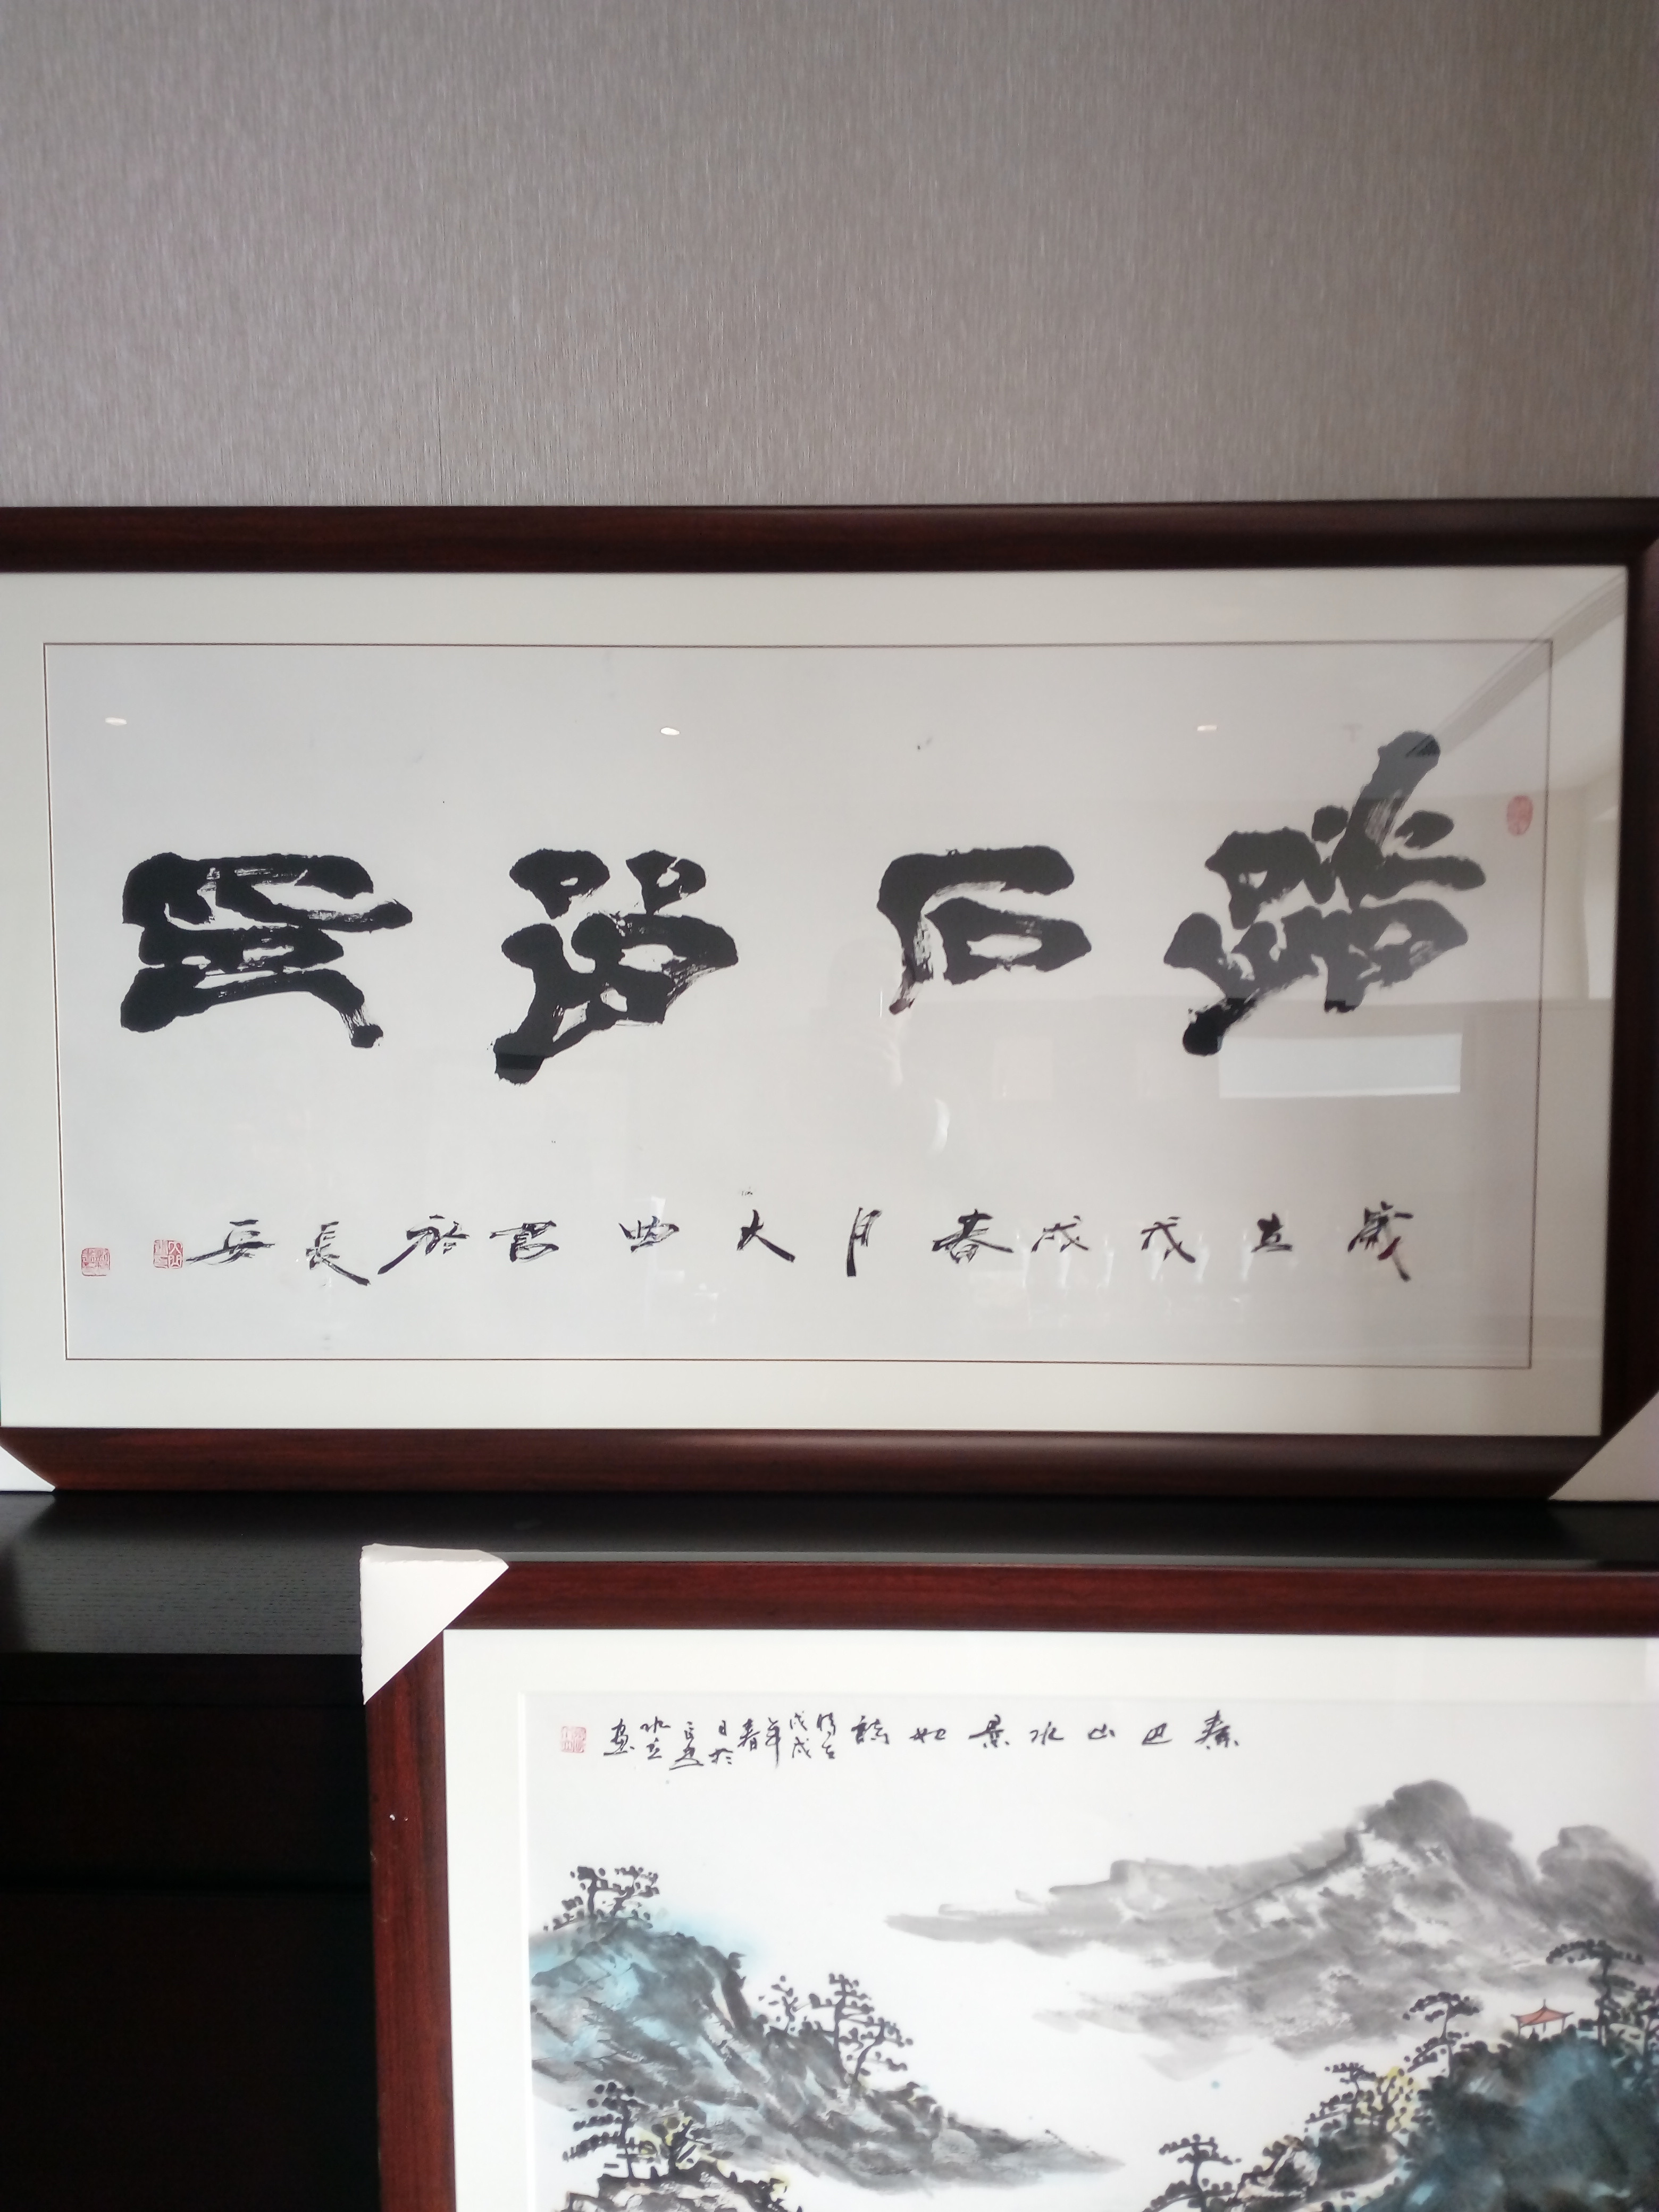 踏石留印
歲在戊戌春月大書於長安
秦巴山水景如詩
時在
戊戌
年
春
日於
長安
水立
畫